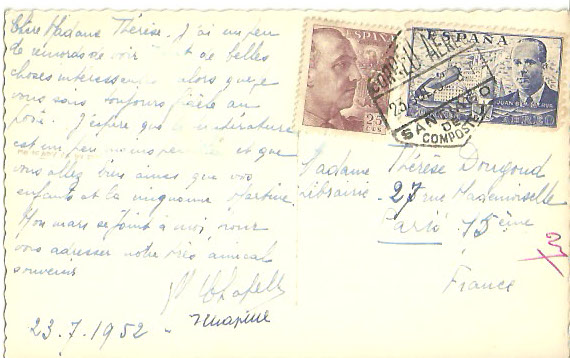 Chère Madame Thérèse. J'ai un peu
de remords de voir tant de belles
choses intéressantes alors que je
vous sais toujours fidèle au
poste. J'espère que la température
est un peu moins et que
vous allez bien ainsi que vos
enfants et la mignonne Martine.
Mon mari se joint à moi pour
vous adresser notre très amical
souvenir
23.7.1952 -
ESPAÑA
25
CTS
CORREO AEREO
23
SANTIAGO
DE
COMPOSTELA
ESPAÑA
JUAN DE LA CIERVA
CORREO
Madame Thérèse
Librairie - 27 rue Mademoiselle
Paris 15ème
France